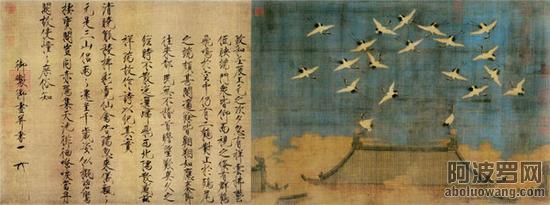 政和壬辰上元之次夕忽有祥雲拂鬱
低映端門眾皆仰而視之倏有群鶴
飛鳴於空中仍有二鶴對止於鴟尾
之端頗甚閒適餘皆翱翔如應奏節
往來都民無不稽首瞻望歎異久之
經時不散迤邐歸飛西北隅散感茲
祥瑞故作詩以紀其實
清曉觚稜拂彩霓仙禽告瑞忽來儀飄飄
元是三山侶兩兩還呈千歲姿似擬碧鸞
棲寶閣豈同赤雁集天池徘徊嘹唳當丹
闕故使憧憧庶俗知
御製御畫并書
阿波罗网
aboluowang.com